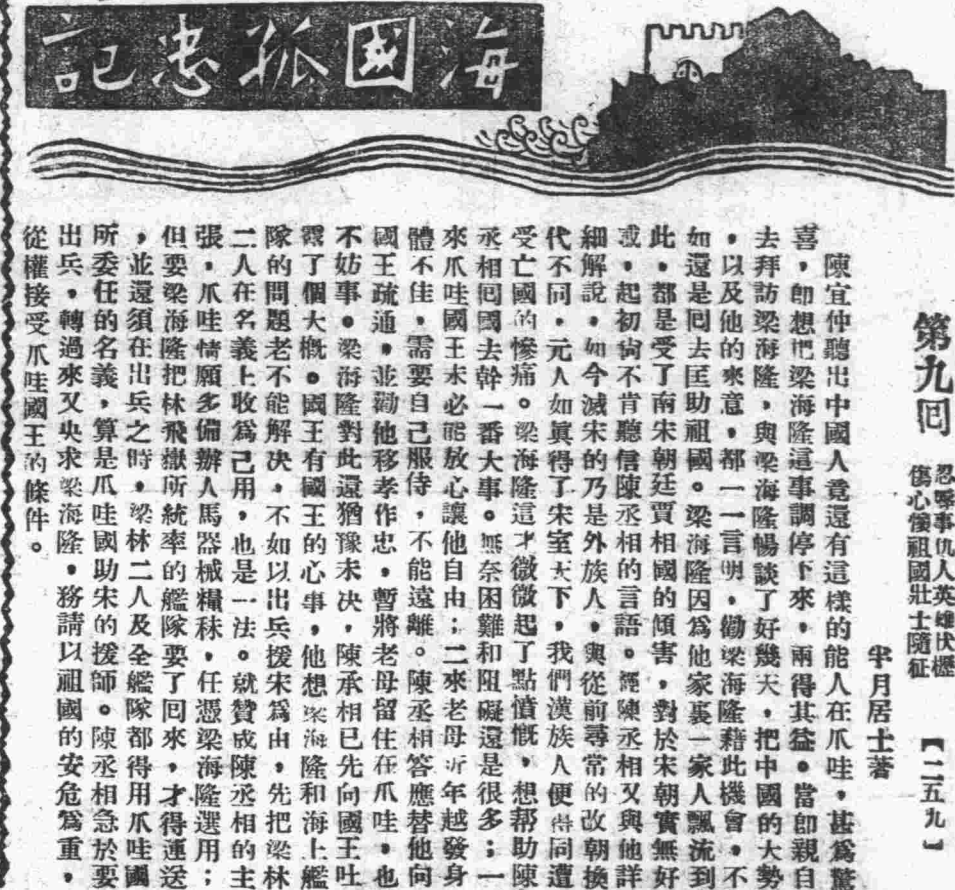 海國孤忠記
第九回
忍辱事仇人英雄伏櫪
傷心懷祖國壯士隨征
【二五九】
半月居士著
陳宜仲聽出中國人竟還有這樣的能人在爪哇，甚爲驚
喜，卽想把梁海隆這事調停下來，兩得其益。當卽親自
去拜訪梁海隆，與梁海隆暢談了好幾天，把中國的大勢
，以及他的來意，都一一言明，勸梁海隆藉此機會，不
如還是囘去匡助祖國。梁海隆因爲他家裏一家人飄流到
此，都是受了南宋朝廷賈相國的傾害，對於宋朝實無好
或，起初尙不肯聽信陳丞相的言語。經陳丞相又與他詳
細解說，如今滅宋的乃是外族人，與從前尋常的改朝換
代不同，元人如眞得了宋室天下，我們漢族人便得同遭
受亡國的慘痛。梁海隆這才微微起了點憤慨，想帮助陳
丞相囘國去幹一番大事。無奈困難和阻礙還是很多；一
來爪哇國王未必能放心讓他自由；二來老母近年越發身
體不佳，需要自己服侍，不能遠離。陳丞相答應替他向
國王疏通，並勸他移孝作忠，暫將老母留住在爪哇，也
不妨事。梁海隆對此還猶豫未决，陳承相已先向國王吐
露了個大槪。國王有國王的心事，他想梁海隆和海上艦
隊的問題老不能解决，不如以出兵援宋爲由，先把梁林
二人在名義上收爲己用，也是一法。就贊成陳丞相的主
張，爪哇情願多備辦人馬器械糧秣，任憑梁海隆選用；
但要梁海隆把林飛嶽所統率的艦隊要了囘來，才得運送
，並還須在出兵之時，梁林二人及全艦隊都得用爪哇國
所委任的名義，算是爪哇國助宋的援師。陳丞相急於要
出兵，轉過來又央求梁海隆，務請以祖國的安危爲重，
從權接受爪哇國王的條件。